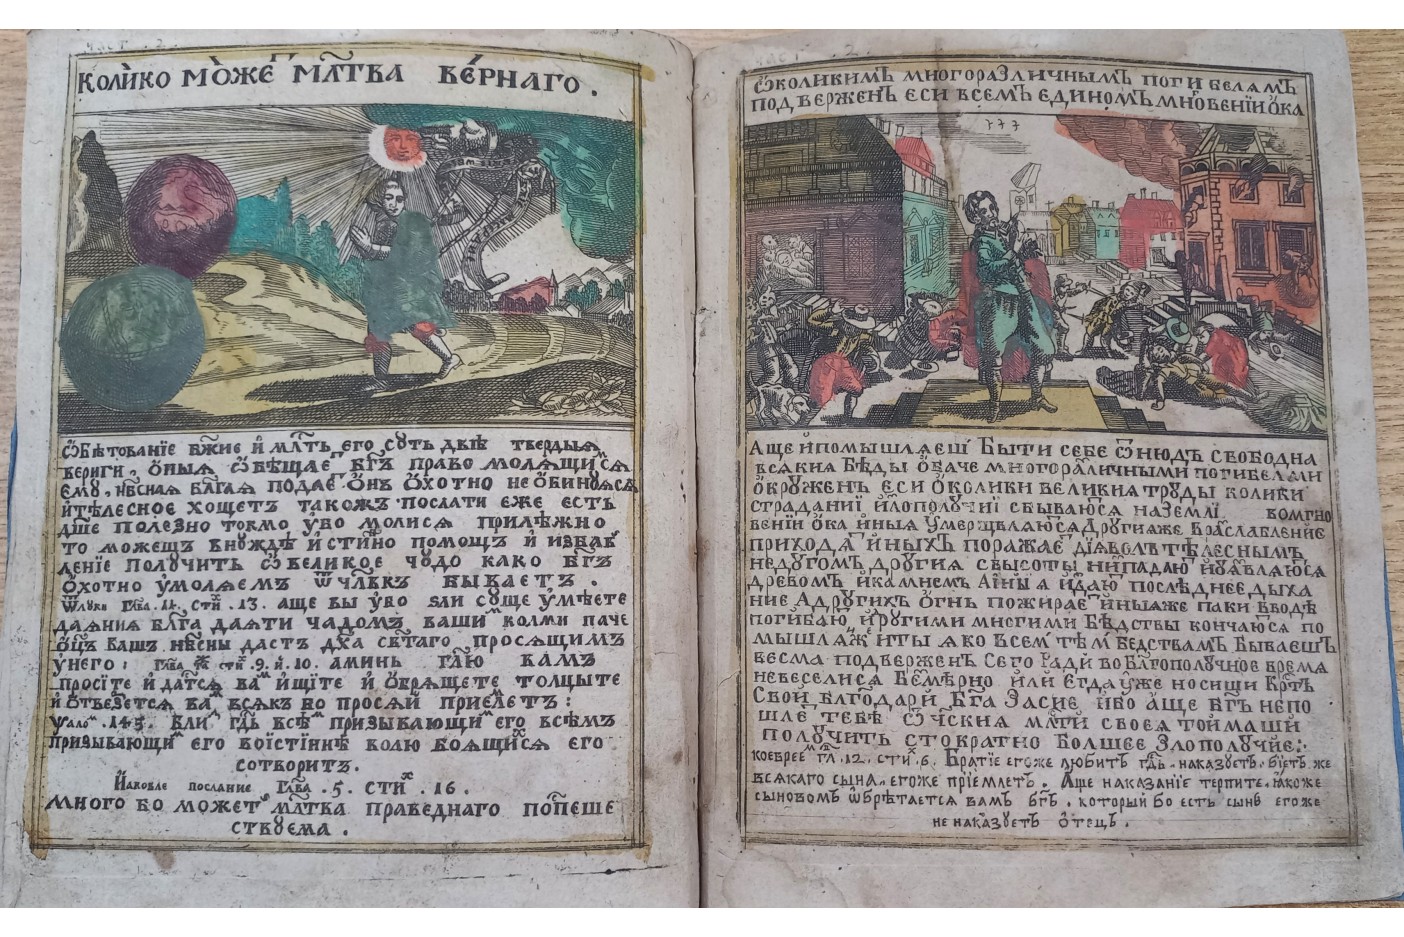 КОЛИКО МОЖЕТ МЛТВА ВЕРНАГО.
ѾБѢТОВАНІЕ БЖИЕ И МЛТЬ ЕГО СУТЬ ДВѢ ТВЕРДЫЯ
ВЕРИГИ, ОНЫЯ ѾБѢЩАЕТ БГЪ ПРАВО МОЛЯЩИМСЯ
ЕМУ, НБСНАЯ БЛГАЯ ПОДАЕТ ОНЪ ОХОТНО НЕ ОБИНУЯСЯ
И ТѢЛЕСНОЕ ХОЩЕТЪ ТАКОЖЪ ПОСЛАТИ ЕЖЕ ЕСТЬ
ДШЕ ПОЛЕЗНО ТОКМО УБО МОЛИСЯ ПРИЛѢЖНО
ТО МОЖЕШЪ ВНУЖДѢ ИСТИНО ПОМОЩЪ И ИЗБАВ
ДЕНІЕ ПОЛУЧИТЬ Ѿ ВЕЛИКОЕ ЧУДО КАКО БГЪ
ОХОТНО УМОЛЯЕМЪ Ѿ ЧЛВКЪ БЫВАЕТЪ.
Ѿ ЛУКИ ГЛВА. 11. СТИХ. 13. АЩЕ ВЫ УБО ЗЛИ СУЩЕ УМѢЕТЕ
ДАЯНИЯ БЛГА ДАЯТИ ЧАДОМЪ ВАШИМ КОЛМИ ПАЧЕ
ОЦЪ ВАШЪ НБСНЫ ДАСТЪ ДХА СВТАГО ПРОСЯЩИМЪ
УНЕГО: СТИХ. 9. И. 10. АМИНЬ ГЛЮ ВАМЪ
ПРОСІТЕ И ДАТСЯ ВАМ ИЩІТЕ И ОБРЯЩЕТЕ ТОЛЦЫТЕ
И ОТВЕЗЕТСЯ ВАМ ВСЯКЪ БО ПРОСЯЙ ПРИЕМЛЕТЪ:
ѰАЛОМ. 145. БЛИЗ ГДЬ ВСѢМ ПРИЗЫВАЮЩИМ ЕГО ВСѢМЪ
ПРИЗЫВАЮЩИМ ЕГО ВОІСТІННѢ ВОЛЮ БОЯЩИХСЯ ЕГО
СОТВОРИТЪ.
ИАКОВЛЕ ПОСЛАНИЕ ГЛВА. 5. СТИХ. 16.
МНОГО БО МОЖЕТ МЛТВА ПРАВЕДНАГО ПОСПЕШЕ
СТВУЕМА.
Ѿ КОЛИКИМЪ МНОГОРАЗЛИЧНЫМЪ ПОГИБЕЛЯМЪ
ПОДВЕРЖЕНЪ ЕСИ ВСЕМЪ ЕДИНОМЪ МГНОВЕНІИ ОКА
АЩЕ И ПОМЫШЛЯЕШІ БЫТИ СЕБЕ ѾНЮДЪ СВОБОДНА
ВСЯКИЯ БѢДЫ ОБАЧЕ МНОГОРАЗЛИЧНЫМИ ПОГИБЕЛЯМИ
ОКРУЖЕНЪ ЕСИ ОКОЛИКИ ВЕЛИКИЯ ТРУДЫ КОЛИКИ
СТРАДАНІИ И ЗЛОПОЛУЧІИ СБЫВАЮСЯ НАЗЕМЛІ. ВОМГНО
ВЕНІИ ОКА ИНЫЯ УМЕРЩВЛЯЮСЯ ДРУГИЯЖЕ ВРАСЛАБЛЕНИЕ
ПРИХОДЯТ ИНЫХЪ ПОРАЖАЕТ ДІЯВОЛЪ ТѢЛЕСНЫМЪ
НЕДУГОМЪ ДРУГИЯ СВЫСОТЫ НИСПАДАЮТ ИОУЯВЛЯЮСЯ
ДРЕВОМЪ И КАМНЕМЪ А ИНЫЯ ИЗДАЮТ ПОСЛѢДНЕЕ ДЫХА
НИЕ А ДРУГИХЪ ОГНЬ ПОЖИРАЕТ ИНЫЯЖЕ ПАКИ ВВОДѢ
ПОГИБАЮТ И ДРУГИМИ МНОГИМИ БѢДСТВЫ КОНЧАЮСЯ ПО
МЫШЛЯЙЖ И ТЫ ЯКО ВСЕМ ТѢМ БЕДСТВАМЪ БЫВАЕШЪ
ВЕСМА ПОДВЕРЖЕНЪ СЕГО РАДИ ВО БЛГОПОЛУЧНОЕ ВРЕМЯ
НЕВЕСЕЛИСЯ БЕЗМѢРНО ИЛИ ЕГДА УЖЕ НОСИШИ КРТЪ
СВОЙ БЛГОДАРИ БГА ЗА СИЕ ИБО АЩЕ БГЪ НЕПО
ШЛЕТ ТЕБѢ Ѿ ЧСКИЯ МЛТИ СВОЕЯ ТО ИМАШИ
ПОЛУЧИТЬ СТОКРАТНО БОЛШЕЕ ЗЛОПОЛУЧИЕ:
КОЕВРЕЕМ ГЛ. 12. СТИХ. 6. БРАТІЕ ЕГОЖЕ ЛЮБИТЪ ГДЬ. НАКАЗУЕТЪ. БІЕТЪ ЖЕ
ВСЯКАГО СЫНА. ЕГОЖЕ ПРІЕМЛЕТЪ. АЩЕ НАКАЗАНІЕ ТЕРПИТЕ. ЯКОЖЕ
СЫНОВОМЪ ОБРѢТАЕТСЯ ВАМЪ БГЪ. КОТОРЫЙ БО ЕСТЬ СЫНЪ ЕГОЖЕ
НЕ НАКАЗУЕТЪ ОТЕЦЪ.